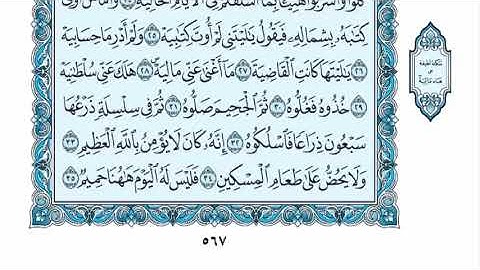 كُلُوا۟ وَٱشْرَبُوا۟ هَنِيٓـًٔۢا بِمَآ أَسْلَفْتُمْ فِى ٱلْأَيَّامِ ٱلْخَالِيَةِ ٢٤ وَأَمَّا مَنْ أُوتِىَ
كِتَٰبَهُۥ بِشِمَالِهِۦ فَيَقُولُ يَٰلَيْتَنِى لَمْ أُوتَ كِتَٰبِيَهْ ٢٥ وَلَمْ أَدْرِ مَا حِسَابِيَهْ
٢٦ يَٰلَيْتَهَا كَانَتِ ٱلْقَاضِيَةَ ٢٧ مَآ أَغْنَىٰ عَنِّى مَالِيَهْ ٢٨ هَلَكَ عَنِّى سُلْطَٰنِيَهْ
٢٩ خُذُوهُ فَغُلُّوهُ ٣٠ ثُمَّ ٱلْجَحِيمَ صَلُّوهُ ٣١ ثُمَّ فِى سِلْسِلَةٍ ذَرْعُهَا
سَبْعُونَ ذِرَاعًا فَٱسْلُكُوهُ ٣٢ إِنَّهُۥ كَانَ لَا يُؤْمِنُ بِٱللَّهِ ٱلْعَظِيمِ ٣٣
وَلَا يَحُضُّ عَلَىٰ طَعَامِ ٱلْمِسْكِينِ ٣٤ فَلَيْسَ لَهُ ٱلْيَوْمَ هَٰهُنَا حَمِيمٌ ٣٥
سكتة لطيفة
على
هاء مالية
٥٦٧